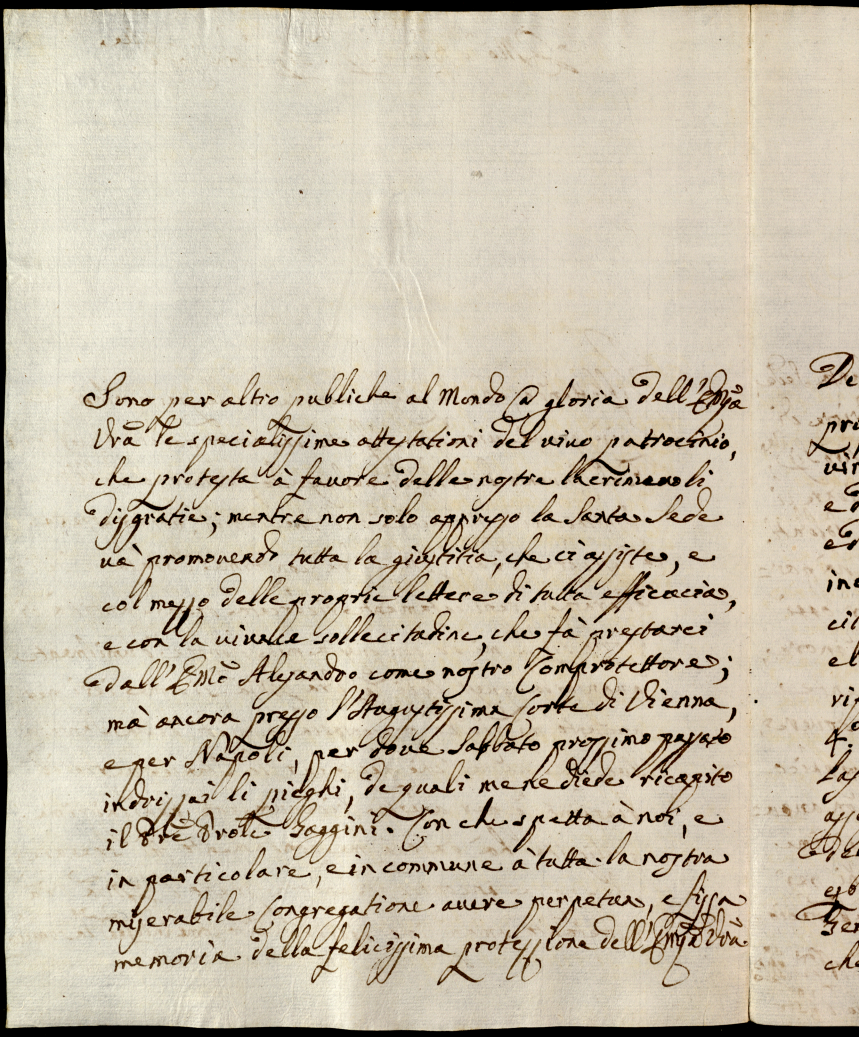 Sono per altro publiche al Mondo @ gloria dell'Emza
Vra le specialissime attestationi del vivo patrocinio,
che protesta à favore delle nostre lacrimevoli
disgratie; mentre non solo appresso la Santa Sede
và promovendo tutta la giustitia, che ci assiste, e
col messo delle proprie lettere di tutta efficacia,
e con la vivace sollecitudine, che fà prestarci
dall'Eme Alesandro come nostro Comprotettore;
mà ancora presso l'Augustissima Corte di Vienna,
e per Napoli, per dove Sabbato prossimo passato
indrissai li pieghi, de quali mene diede ricapito
il Pre Prote Gaggini. Con che spetta à noi, e
in particolare, e in commune à tutta la nostra
miserabile Congregatione avere perpetua, e fissa
memoria della felicissima protessione dell'Emza Vra
De
pro
vir
e
e
ine
cil
el
ris
Las
ass
del
esb
Ger
che